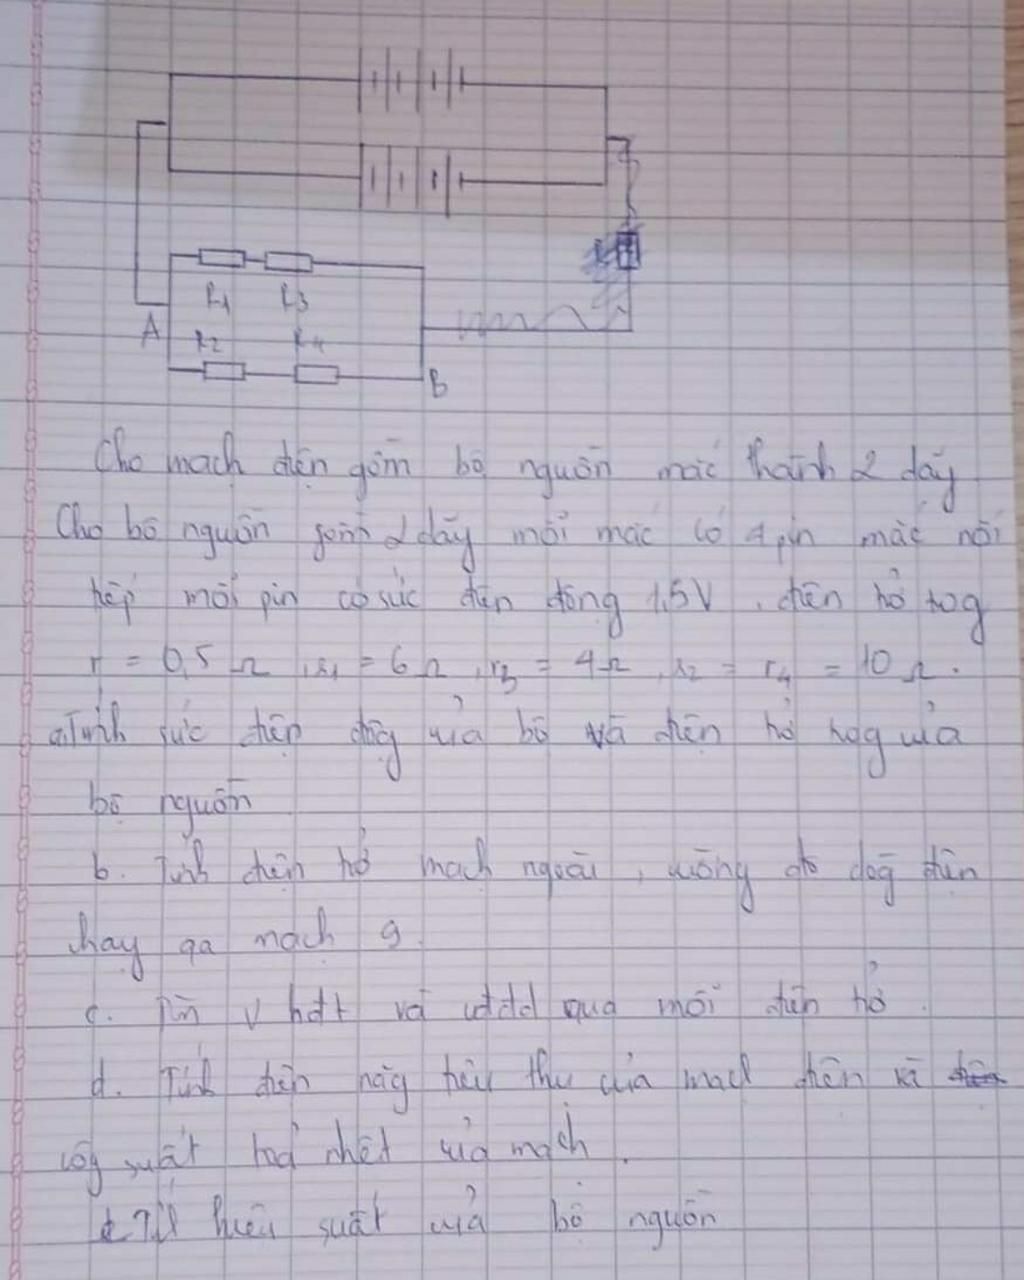 R1 R3
A R2 R4
B
Cho mạch điện gồm bộ nguồn mắc thành 2 dãy
Cho bộ nguồn gồm 2 dãy mỗi mắc có 4 pin mắc nối
tiếp mỗi pin có sức điện động 1,5V, điện trở tog
r = 0,5 Ω, r1 = 6 Ω, r3 = 4 Ω, r2 = r4 = 10 Ω.
a. Tính sức điện độg của bộ và điện trở trog của
bộ nguồn
b. Tính điện trở mạch ngoài, cường độ dòg điện
chạy qa mạch 9
c. Tìm V hđt và cđdđ qua mỗi điện trở.
d. Tính điện năg tiêu thụ của mạch điện và
côg suất toả nhiệt của mạch.
e Tí hiệu suất của bộ nguồn